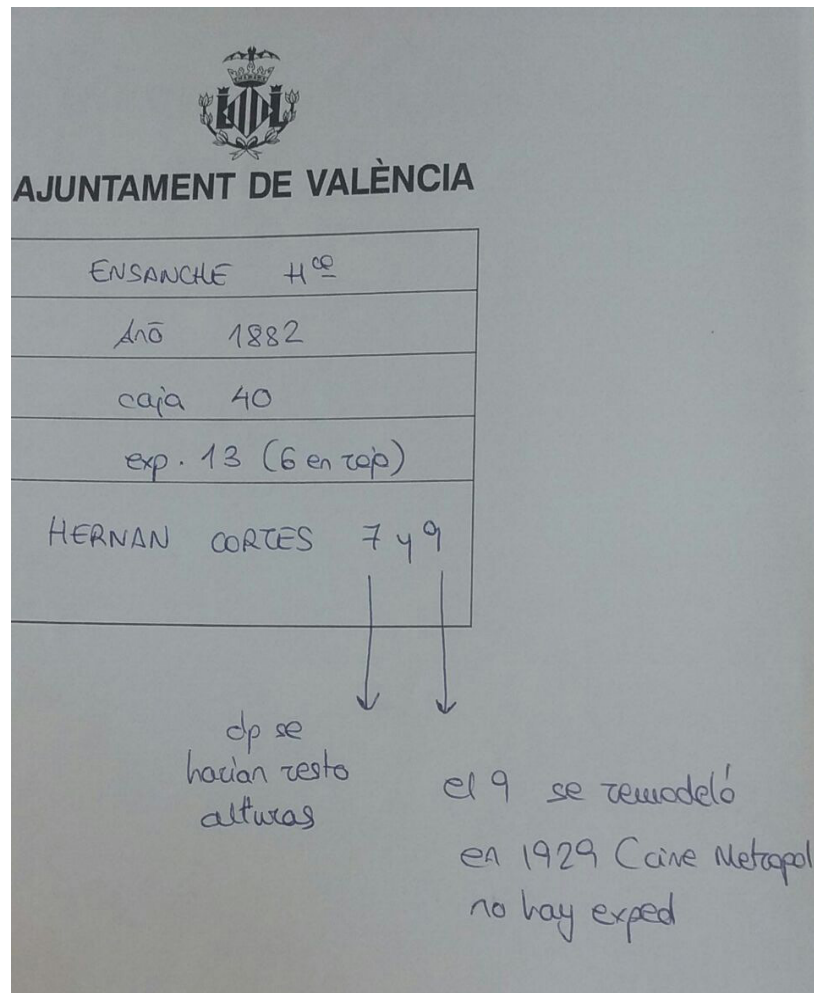 AJUNTAMENT DE VALÈNCIA
ENSANCHE Hco
Año 1882
caja 40
exp. 13 (6 en rojo)
HERNAN CORTES 7 y 9
dp se
hacían resto
alturas
el 9 se remodeló
en 1929 Cine Metropol
no hay exped